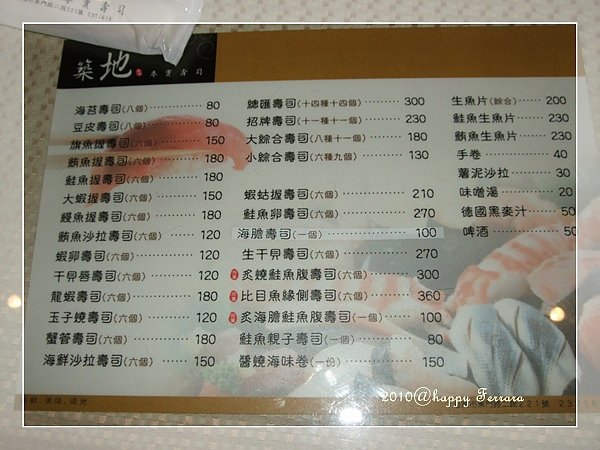 專賣壽司
築地 專賣壽司
海苔壽司(八個) 80
豆皮壽司(八個) 80
旗魚握壽司(六個) 150
鮪魚握壽司(六個) 180
鮭魚握壽司(六個) 180
大蝦握壽司(六個) 150
鰻魚握壽司(六個) 180
鮪魚沙拉壽司(六個) 120
蝦卵壽司(六個) 120
干貝唇壽司(六個) 120
龍蝦壽司(六個) 180
玉子燒壽司(六個) 120
蟹管壽司(六個) 180
海鮮沙拉壽司(六個) 150
總匯壽司(十四種十四個) 300
招牌壽司(十一種十一個) 230
大綜合壽司(八種十一個) 180
小綜合壽司(六種九個) 130
蝦蛄握壽司(六個) 210
鮭魚卵壽司(六個) 270
海膽壽司(一個) 100
生干貝壽司(六個) 270
炙燒鮭魚腹壽司(六個) 300
比目魚緣側壽司(六個) 360
炙海膽鮭魚腹壽司(一個) 100
鮭魚親子壽司(一個) 80
醬燒海味卷(一份) 150
生魚片(綜合) 200
鮭魚生魚片 230
鮪魚生魚片 230
手卷 40
薯泥沙拉 30
味噌湯 20
德國黑麥汁 50
啤酒 50
鮮．美味．道地
2010@happy Ferrara